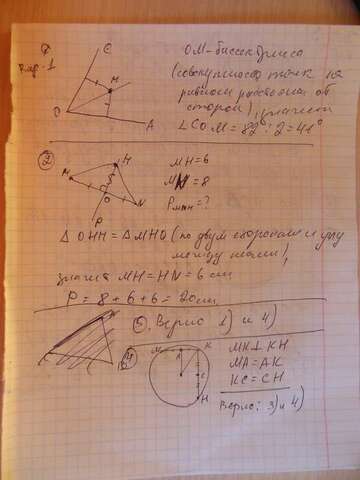 Вар-1
C
M
O
A
OM-биссектриса
(совокупность точек на
равном расстоянии от
сторон), значит
∠COM = 82°:2=41°
②
H
M
O
N
P
MH=6
MN=8
Pмнн=?
△ OHH = △MHO (по двум сторонам и углу
между ними),
значит MH=HN=6 см
P = 8+6+6=20см
③. Верно 1) и 4)
④
M
A
K
C
H
MK⊥KH
MA=AK
KC=CH
Верно: 3) и 4)